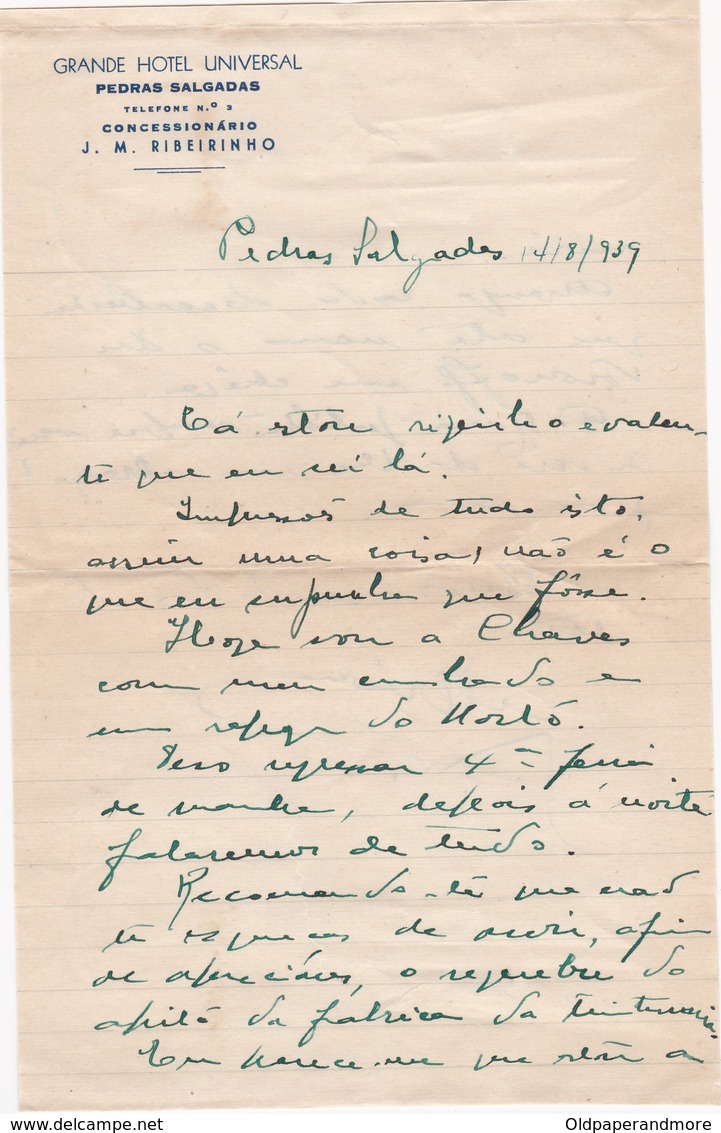 GRANDE HOTEL UNIVERSAL
PEDRAS SALGADAS
TELEFONE N.º 3
CONCESSIONÁRIO
J. M. RIBEIRINHO
Pedras Salgadas 14/8/939
Cá estou rijinho e valen-
te que eu sei lá.
Impressões de tudo isto,
assim uma coisa, não é o
que eu supunha que fôsse.
Hoje vou a Chaves
com meu cunhado e
um do Hotel.
Penso regressar 4ª feira
de manhã, depois á noite
falaremos de tudo.
Recomendo-te que não
te esqueças de ouvir, afim
de apreciáres, o do
apito da fábrica da tinturaria.
Eu parece-me que estou a
Oldpaperandmore